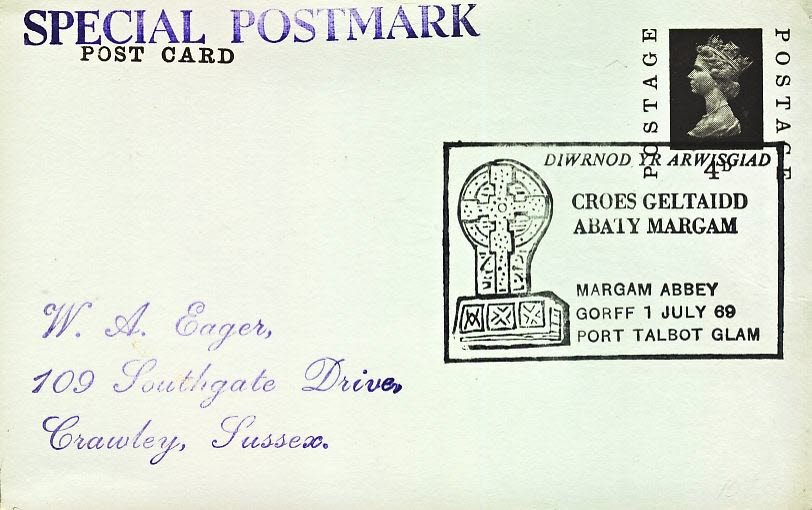 SPECIAL POSTMARK
POST CARD
POSTAGE
POSTAGE
4D
DIWRNOD YR ARWISGIAD
CROES GELTAIDD
ABATY MARGAM
MARGAM ABBEY
GORFF 1 JULY 69
PORT TALBOT GLAM
W. A. Eager,
109 Southgate Drive,
Crawley, Sussex.